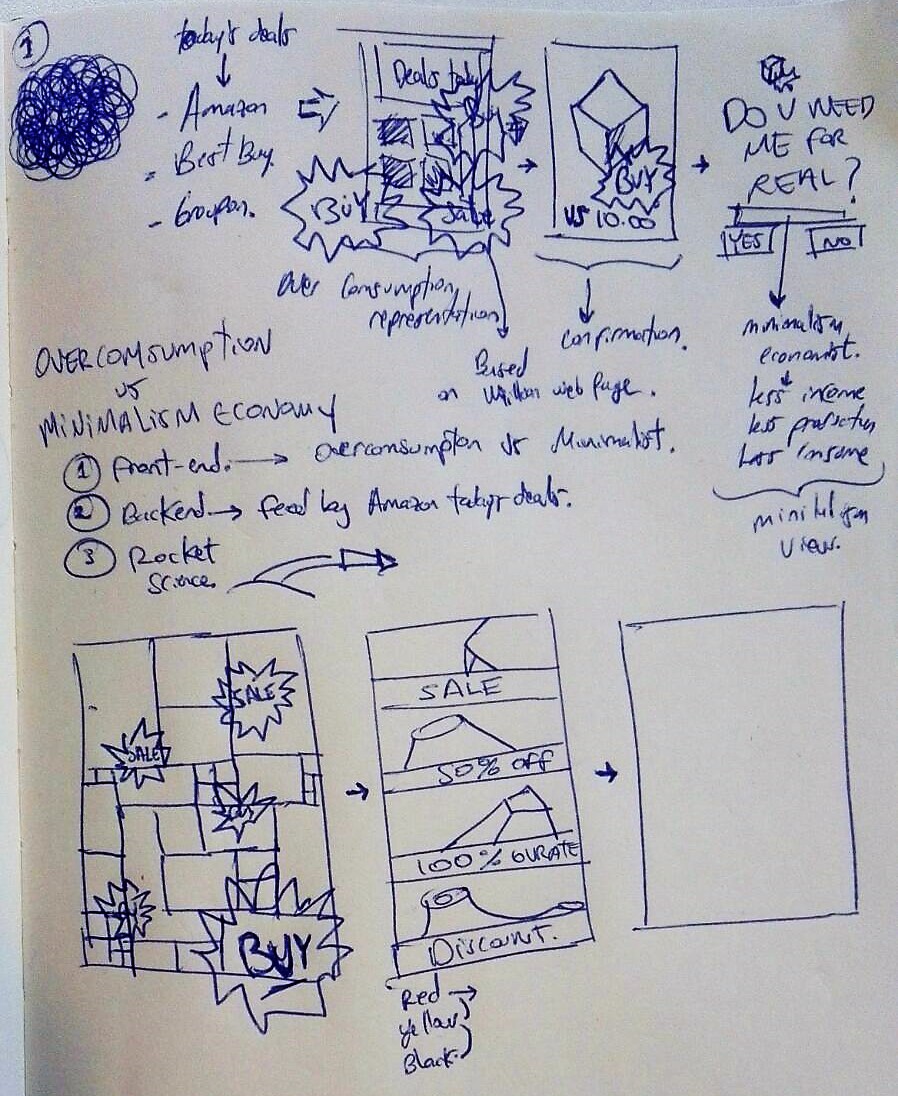 1
today's deals
- Amazon
- Best Buy.
- Groupon.
Deals today
Buy
BUY
Sale
BUY
US 10.00
DO U NEED
ME FOR
REAL?
YES
NO
Over Consumption
representation
Based
on
web page.
confirmation.
minimalism
economist.
less income
less production
Less income
minimalism
view.
OVERCOMSUMPTION
VS
MINIMALISM ECONOMY
1 Front-end. → overconsumption vs Minimalist.
2 Backend → feed by Amazon today's deals.
3 Rocket
Science.
SALE
SALE
BUY
SALE
50% OFF
100%
Discount.
Red
yellow
Black.